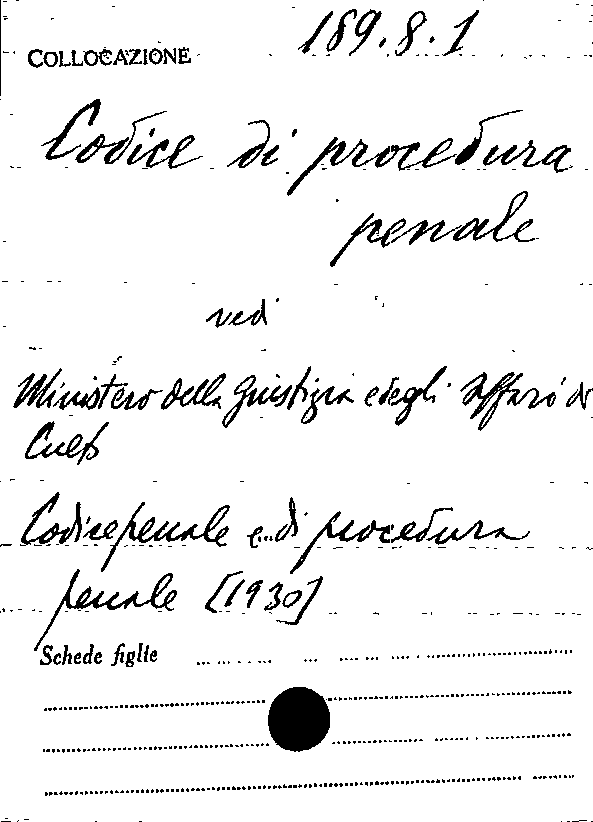 COLLOCAZIONE 189.8.1
Codice di procedura
penale
vedi
Ministero della Giustizia e degli Affari di
Culto
Codice penale e di procedura
penale [1930]
Schede figlie